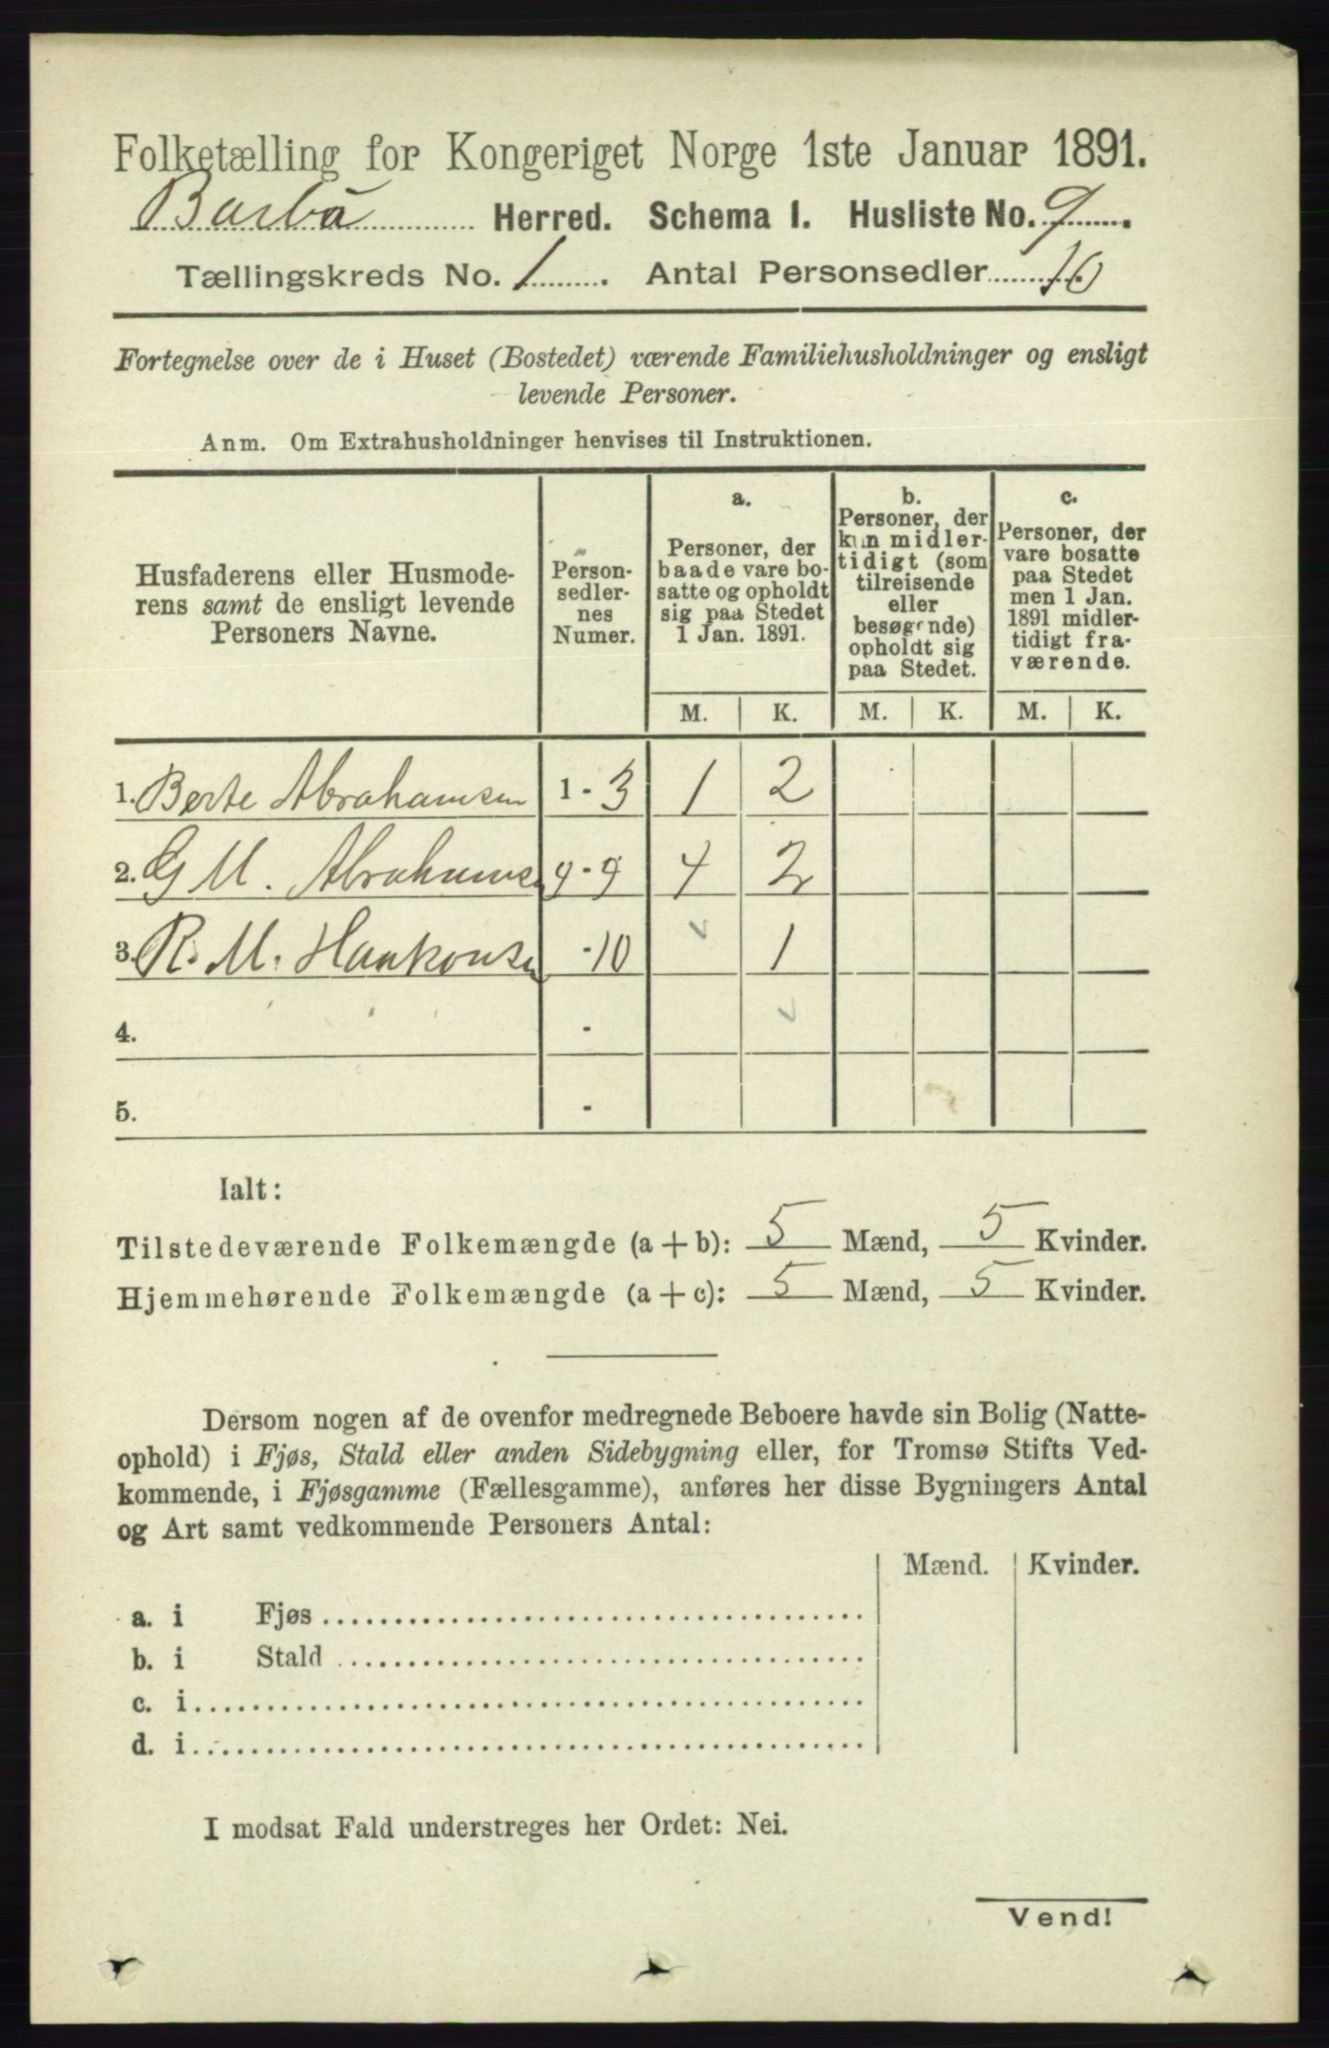 Folketælling for Kongeriget Norge 1ste Januar 1891.
Barbu Herred. Schema I. Husliste No. 9.
Tællingskreds No. 1. Antal Personsedler 10
Fortegnelse over de i Huset (Bostedet) værende Familiehusholdninger og ensligt
levende Personer.
Anm. Om Extrahusholdninger henvises til Instruktionen.
Husfaderens eller Husmode-
rens samt de ensligt levende
Personers Navne.
Person-
sedler-
nes
Numer.
a.
Personer, der
baade vare bo-
satte og opholdt
sig paa Stedet
1 Jan. 1891.
b.
Personer, der
kun midler-
tidigt (som
tilreisende
eller
besøgende)
opholdt sig
paa Stedet.
c.
Personer, der
vare bosatte
paa Stedet
men 1 Jan.
1891 midler-
tidigt fra-
værende.
M. K. M. K. M. K.
1. Berte Abrahamsen 1 - 3 1 2
2. G M. Abrahamsen - 9 4 2
3. R. M. Haakonsen - 10 1
4. -
5. -
Ialt:
Tilstedeværende Folkemængde (a + b): 5 Mænd, 5 Kvinder.
Hjemmehørende Folkemængde (a + c): 5 Mænd, 5 Kvinder.
Dersom nogen af de ovenfor medregnede Beboere havde sin Bolig (Natte-
ophold) i Fjøs, Stald eller anden Sidebygning eller, for Tromsø Stifts Ved-
kommende, i Fjøsgamme (Fællesgamme), anføres her disse Bygningers Antal
og Art samt vedkommende Personers Antal:
Mænd. Kvinder.
a. i Fjøs
b. i Stald
c. i
d. i
I modsat Fald understreges her Ordet: Nei.
Vend!